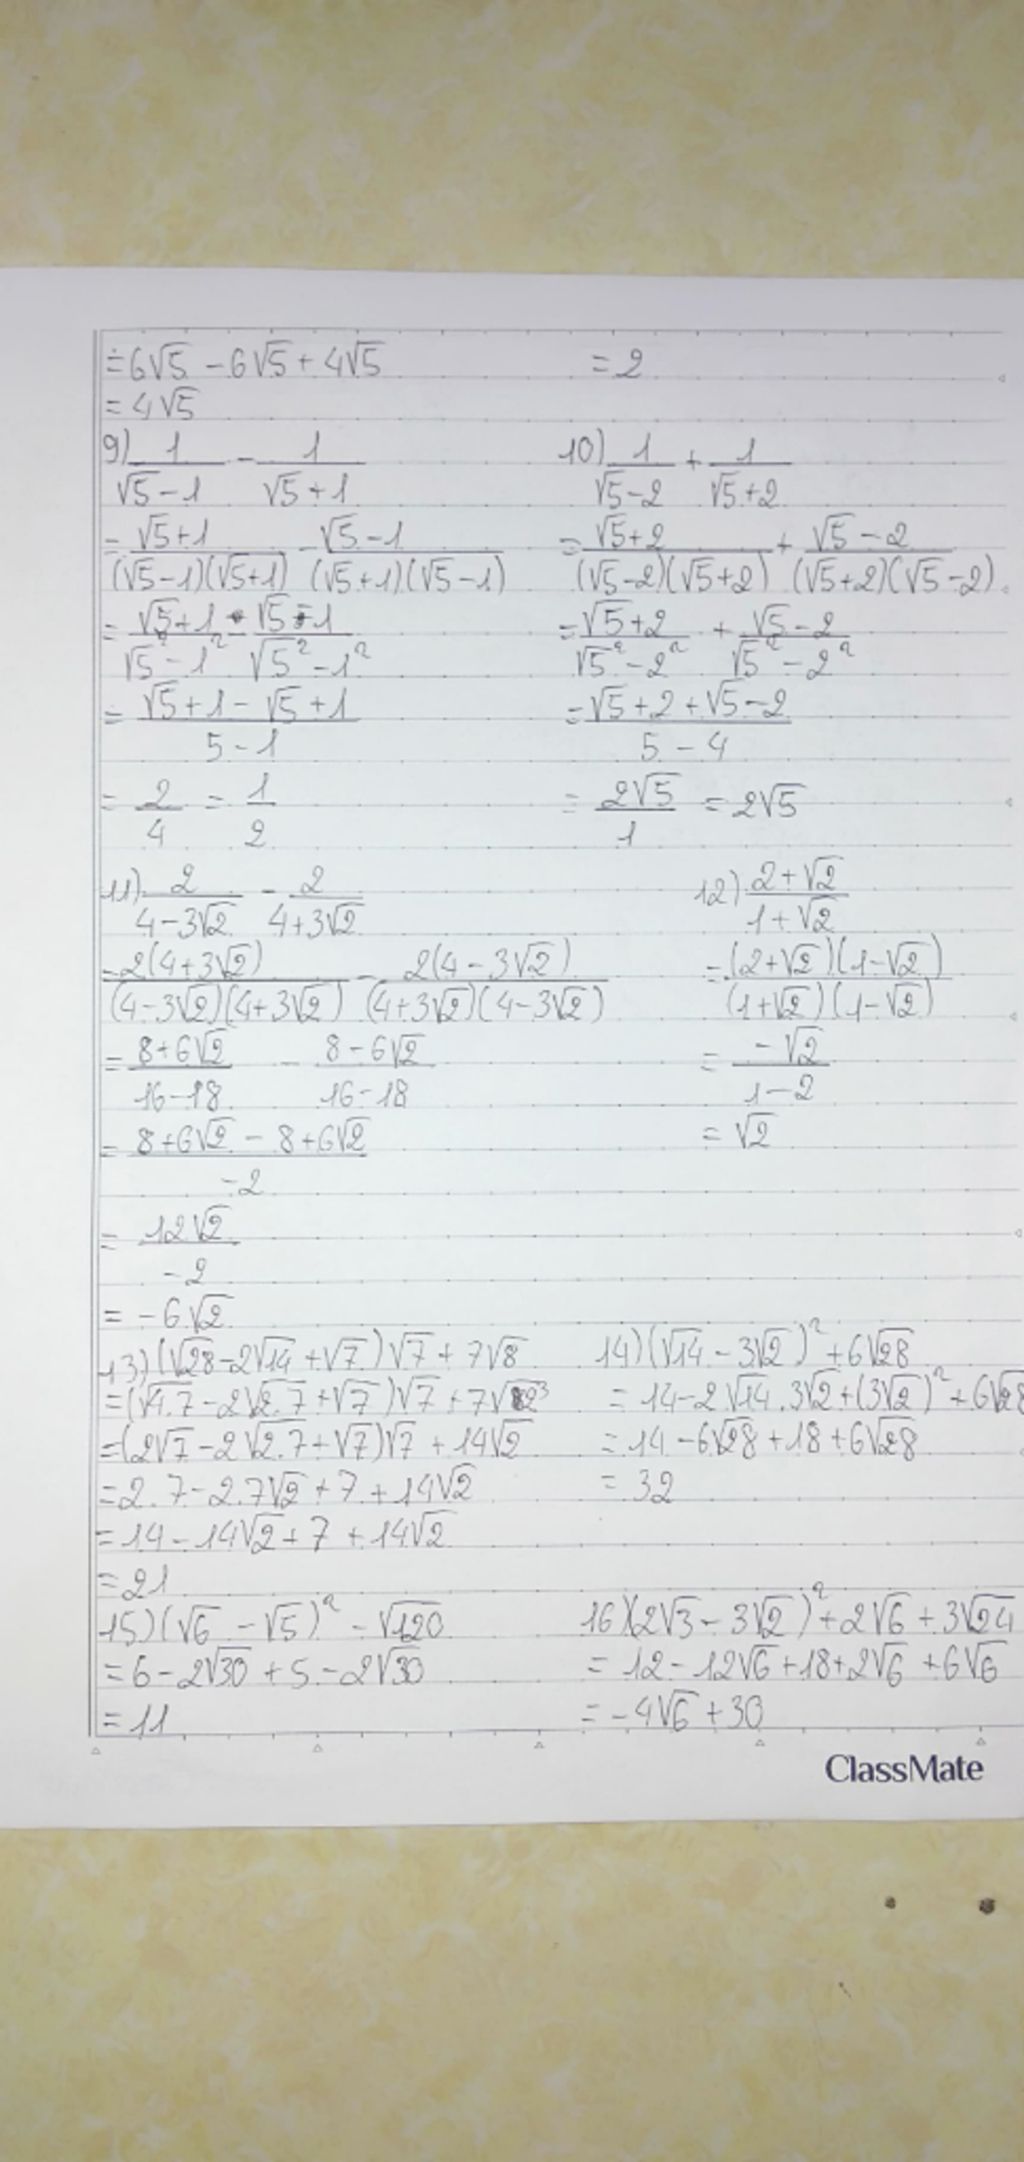 = 6√5 - 6√5 + 4√5
= 4√5
= 2
9) 1/(√5-1) - 1/(√5+1)
= (√5+1)/((√5-1)(√5+1)) - (√5-1)/((√5+1)(√5-1))
= (√5+1)/(√5²-1²) - (√5-1)/(√5²-1²)
= (√5+1-√5+1)/(5-1)
= 2/4 = 1/2
10) 1/(√5-2) + 1/(√5+2)
= (√5+2)/((√5-2)(√5+2)) + (√5-2)/((√5+2)(√5-2))
= (√5+2)/(√5²-2²) + (√5-2)/(√5²-2²)
= (√5+2+√5-2)/(5-4)
= 2√5/1 = 2√5
11) 2/(4-3√2) - 2/(4+3√2)
= 2(4+3√2)/((4-3√2)(4+3√2)) - 2(4-3√2)/((4+3√2)(4-3√2))
= (8+6√2)/(16-18) - (8-6√2)/(16-18)
= (8+6√2-8+6√2)/-2
= 12√2/-2
= -6√2
12) (2+√2)/(1+√2)
= (2+√2)(1-√2)/((1+√2)(1-√2))
= -√2/(1-2)
= √2
13) (√28-2√14+√7)√7+7√8
= (√4.7-2√2.7+√7)√7+7√2³
= (2√7-2√2.7+√7)√7+14√2
= 2.7-2.7√2+7+14√2
= 14-14√2+7+14√2
= 21
14) (√14-3√2)²+6√28
= 14-2√14.3√2+(3√2)²+6√28
= 14-6√28+18+6√28
= 32
15) (√6-√5)²-√120
= 6-2√30+5-2√30
= 11
16) (2√3-3√2)²+2√6+3√24
= 12-12√6+18+2√6+6√6
= -4√6+30
ClassMate